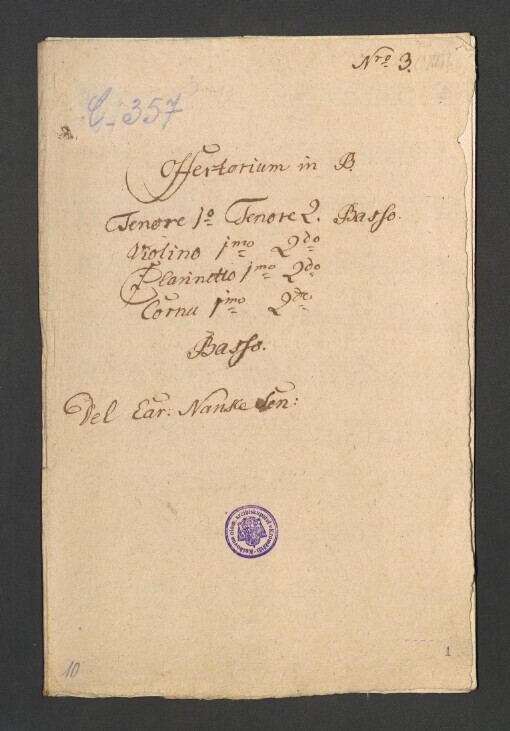 Nro 3.
C. 357
Offertorium in B.
Tenore 1o Tenore 2. Basso.
Violino 1mo 2do
Clarinetto 1mo 2do
Cornu 1mo 2do
Basso.
Del Car: Nanke Sen:
10
1